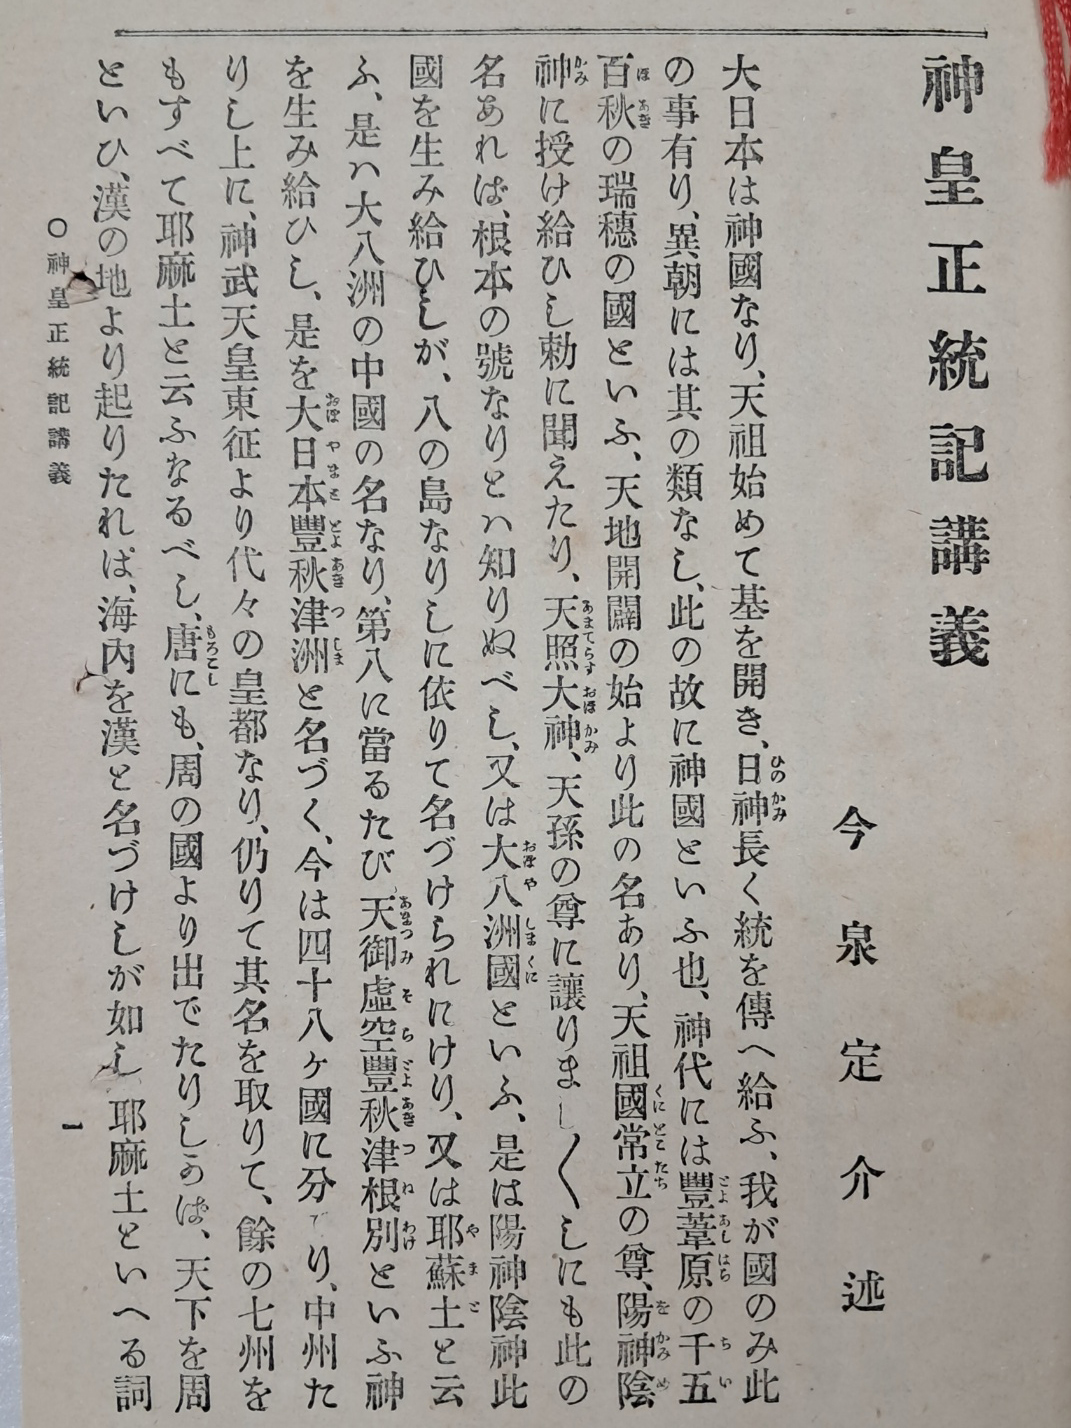 神皇正統記講義
今泉定介述
大日本は神國なり、天祖始めて基を開き、日神長く統を傳へ給ふ、我が國のみ此
の事有り、異朝には其の類なし、此の故に神國といふ也、神代には豐葦原の千五
百秋の瑞穗の國といふ、天地開闢の始より此の名あり、天祖國常立の尊、陽神陰
神に授け給ひし勅に聞えたり、天照大神、天孫の尊に讓りまし〱しにも此の
名あれば、根本の號なりとハ知りぬべし、又は大八洲國といふ、是は陽神陰神此
國を生み給ひしが、八の島なりしに依りて名づけられにけり、又は耶蘇土と云
ふ、是ハ大八洲の中國の名なり、第八に當るたび天御虛空豐秋津根別といふ神
を生み給ひし、是を大日本豐秋津洲と名づく、今は四十八ヶ國に分てり、中州た
りし上に、神武天皇東征より代々の皇都なり、仍りて其名を取りて、餘の七州を
もすべて耶麻土と云ふなるべし、唐にも、周の國より出でたりしかば、天下を周
といひ、漢の地より起りたれば、海内を漢と名づけしが如し、耶麻土といへる詞
〇神皇正統記講義
一